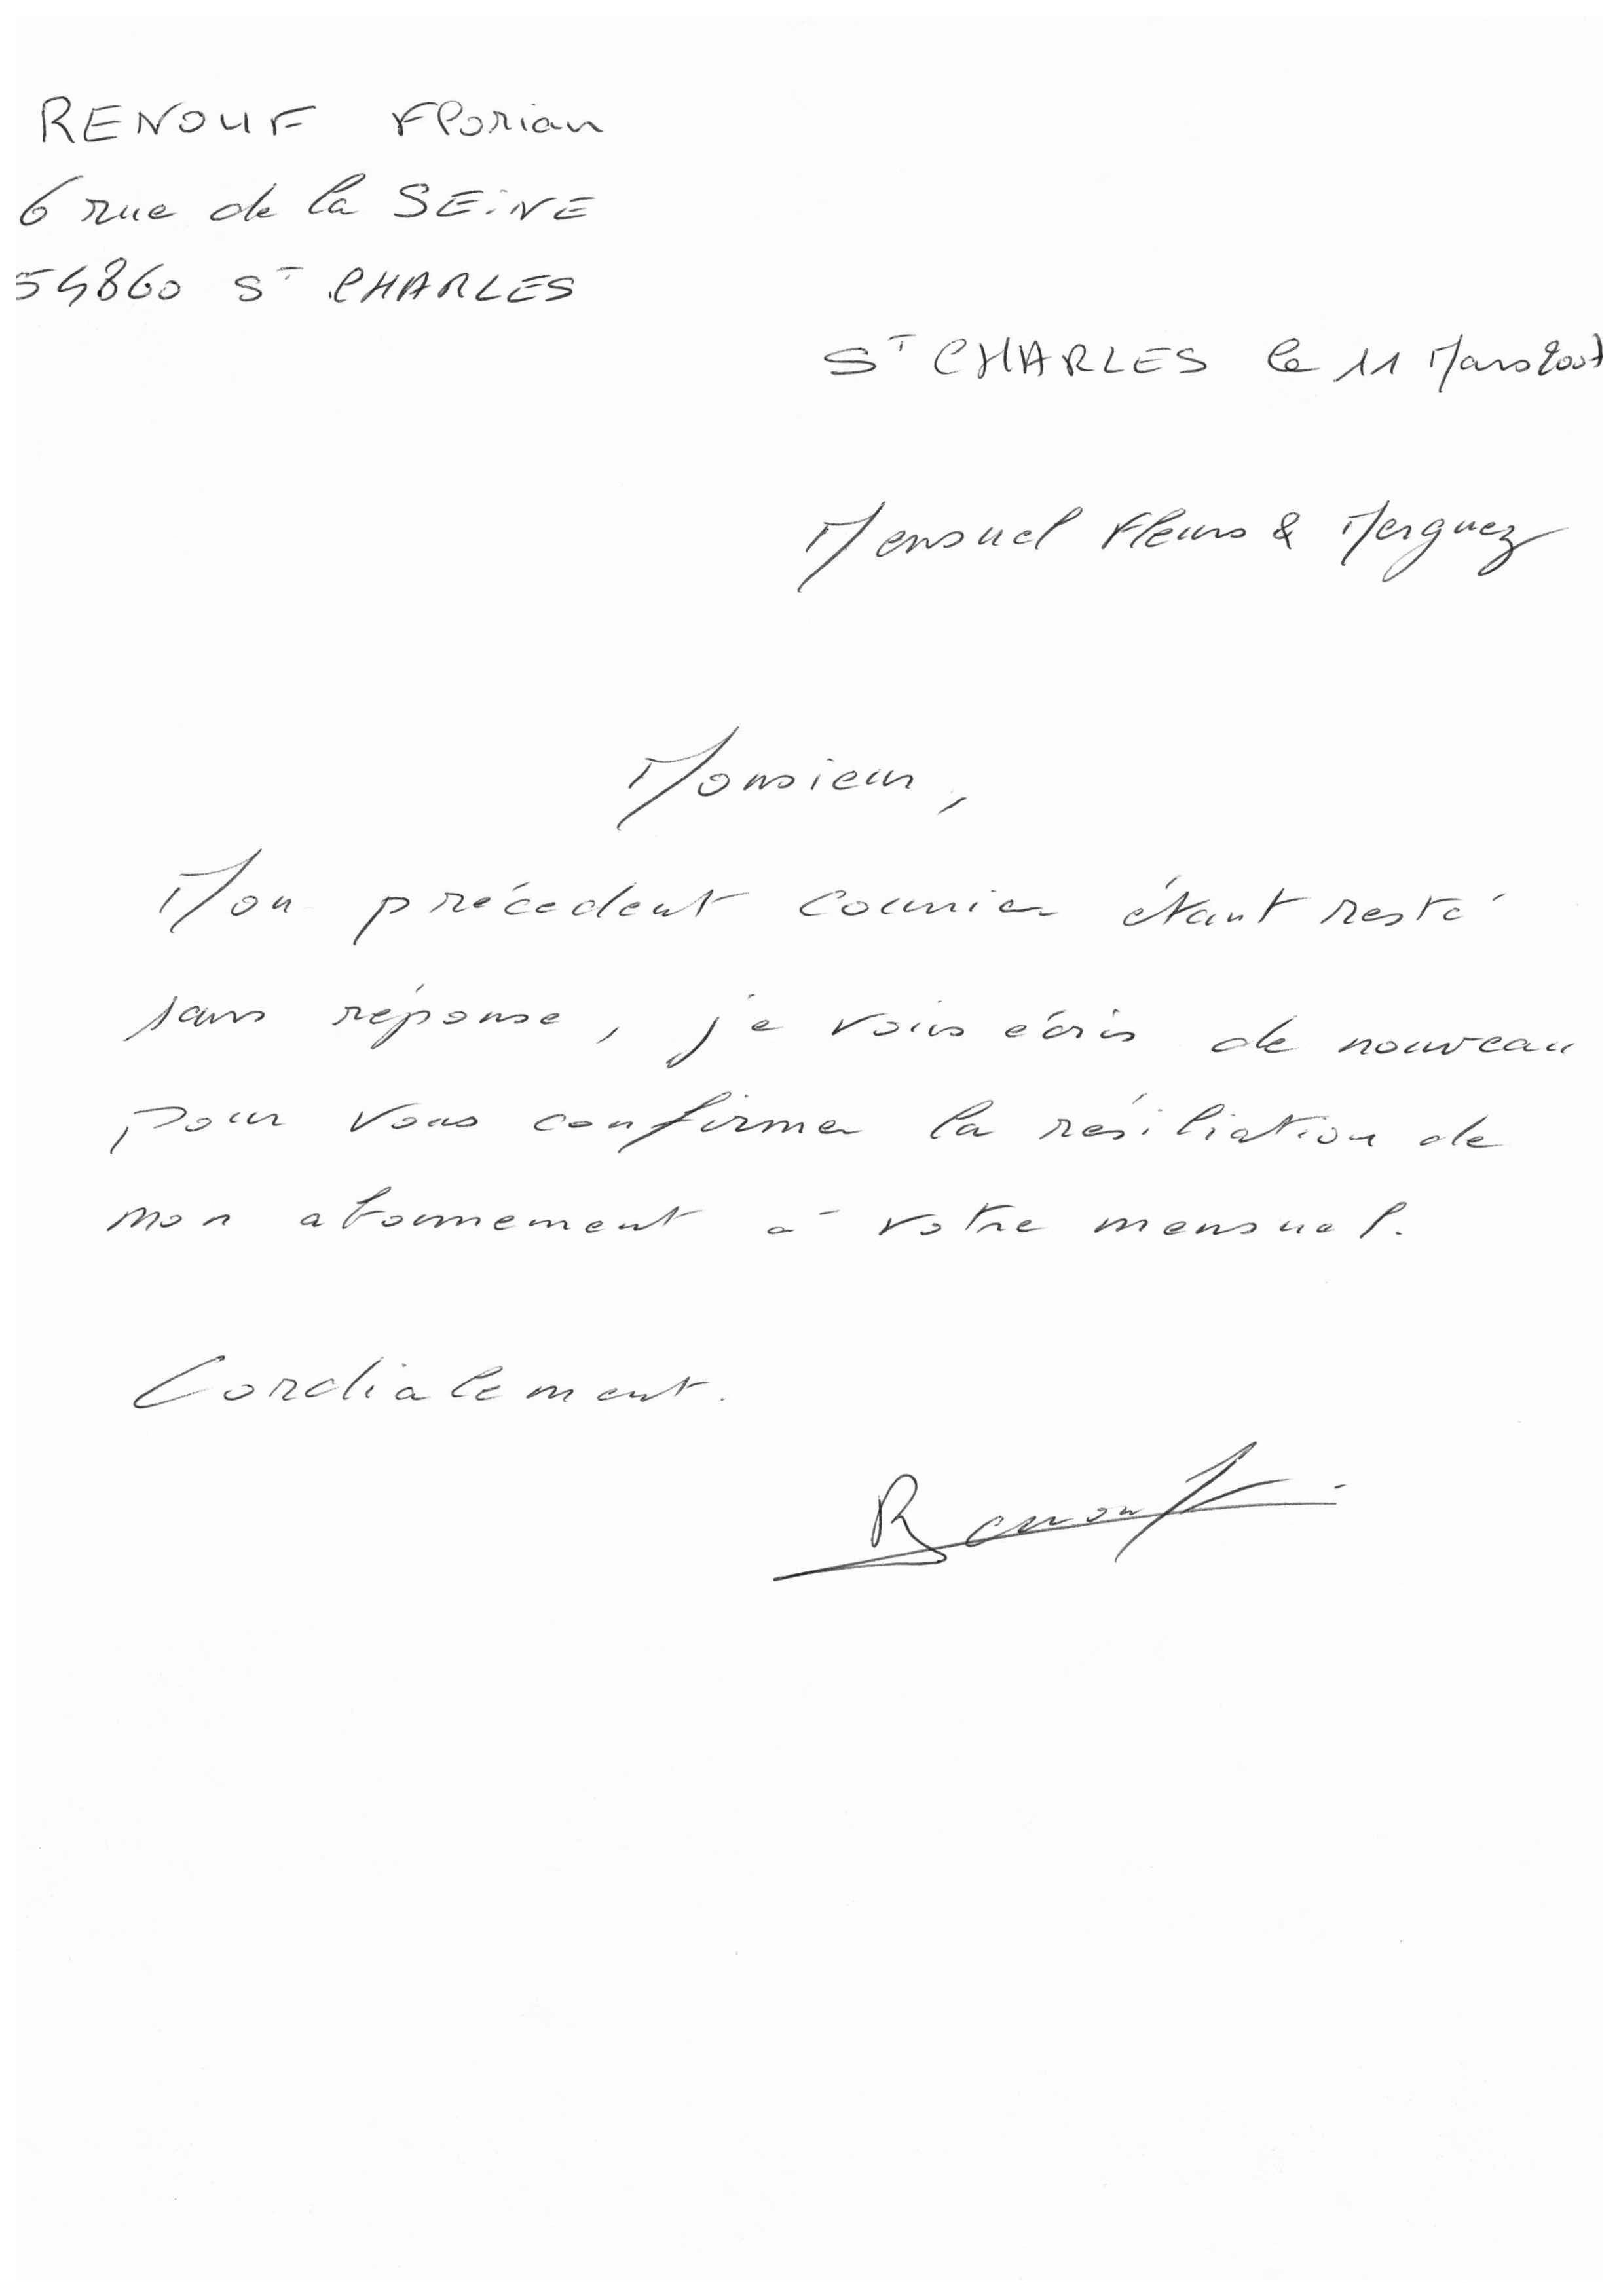 RENOUF Florian
6 rue de la SEINE
54860 ST CHARLES
ST CHARLES le 11 Mars 2007
Mensuel Fleurs & Merguez
Monsieur,
Mon précedent courrier étant resté
sans réponse, je vous écris de nouveau
pour vous confirmer la résiliation de
mon abonnement à votre mensuel.
Cordialement.
Renouf